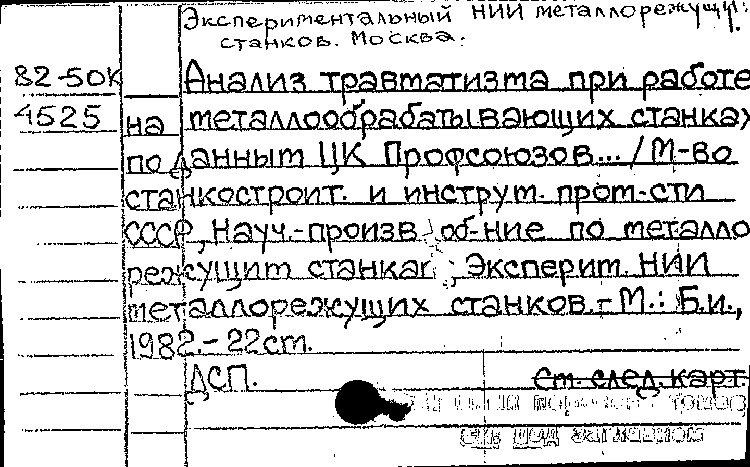 Экспериментальный НИИ металлорежущ.
станков. Москва.
82-50К Анализ травматизма при работе
4525 на металлообрабатывающих станках
по данным ЦК Профсоюзов... / М-во
станкостроит. и инструм. пром-сти
СССР, Науч.-произв об-ние по металло
режущим станкам; Эксперим. НИИ
металлорежущих станков. - М.: Б.и.,
1982. - 22 ст.
ДСП. См. след. карт.
под заглавием